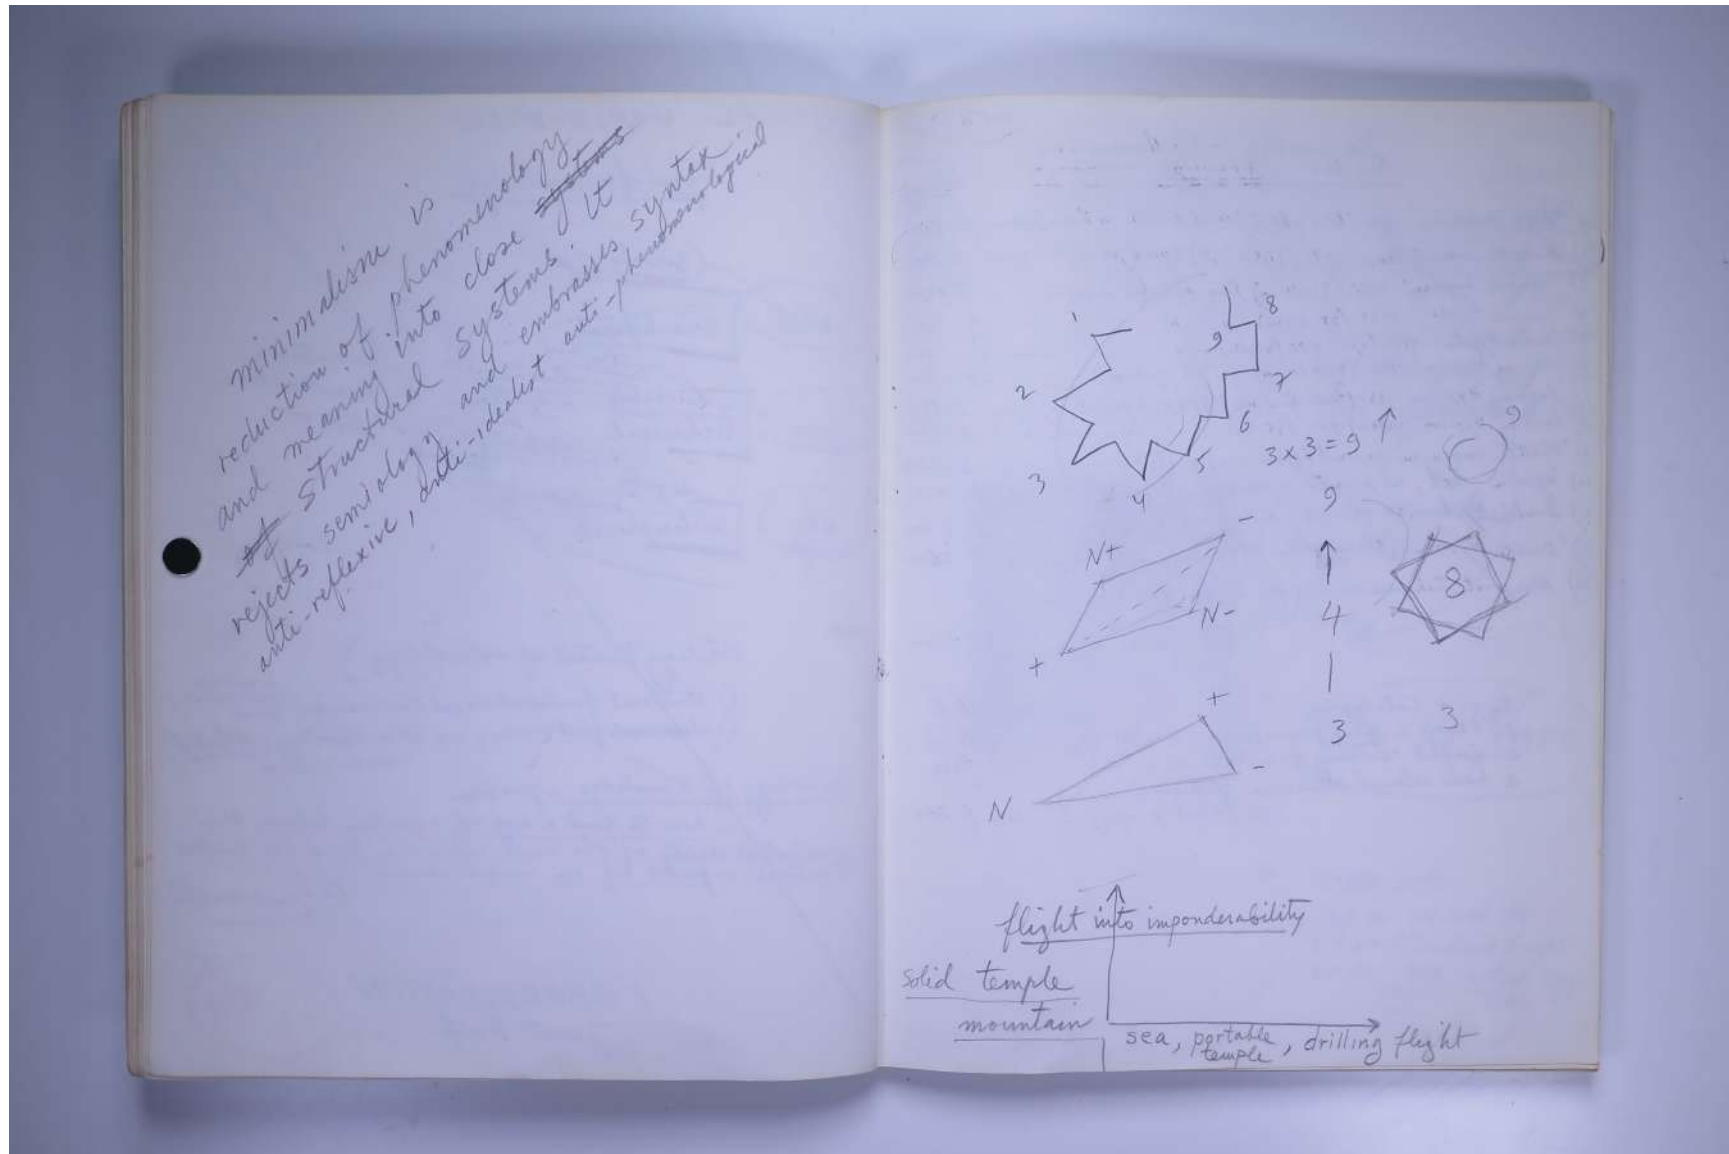 minimalism is
reduction of phenomenology
and meaning into close systems
of structural systems. It
rejects semiology and embrasses syntax
anti-reflexive, anti-idealist anti-phenomenological
1
2
3
4
5
6
7
8
9
3 x 3 = 9
9
9
4
3
8
3
N+
-
N-
+
+
-
N
flight into imponderability
solid temple
mountain
sea, portable temple, drilling flight